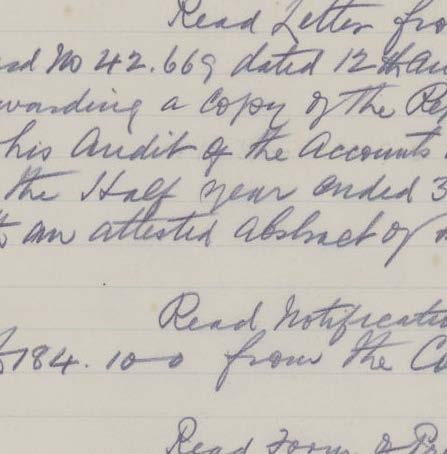 Read Letter fro
ad No 42.669 dated 12th Au
warding a Copy of the Rep
his Audit of the Accounts
the Half year ended 3
an attested Abstract of
Read Notificati
£184.10-0 from the Co
Read Form of